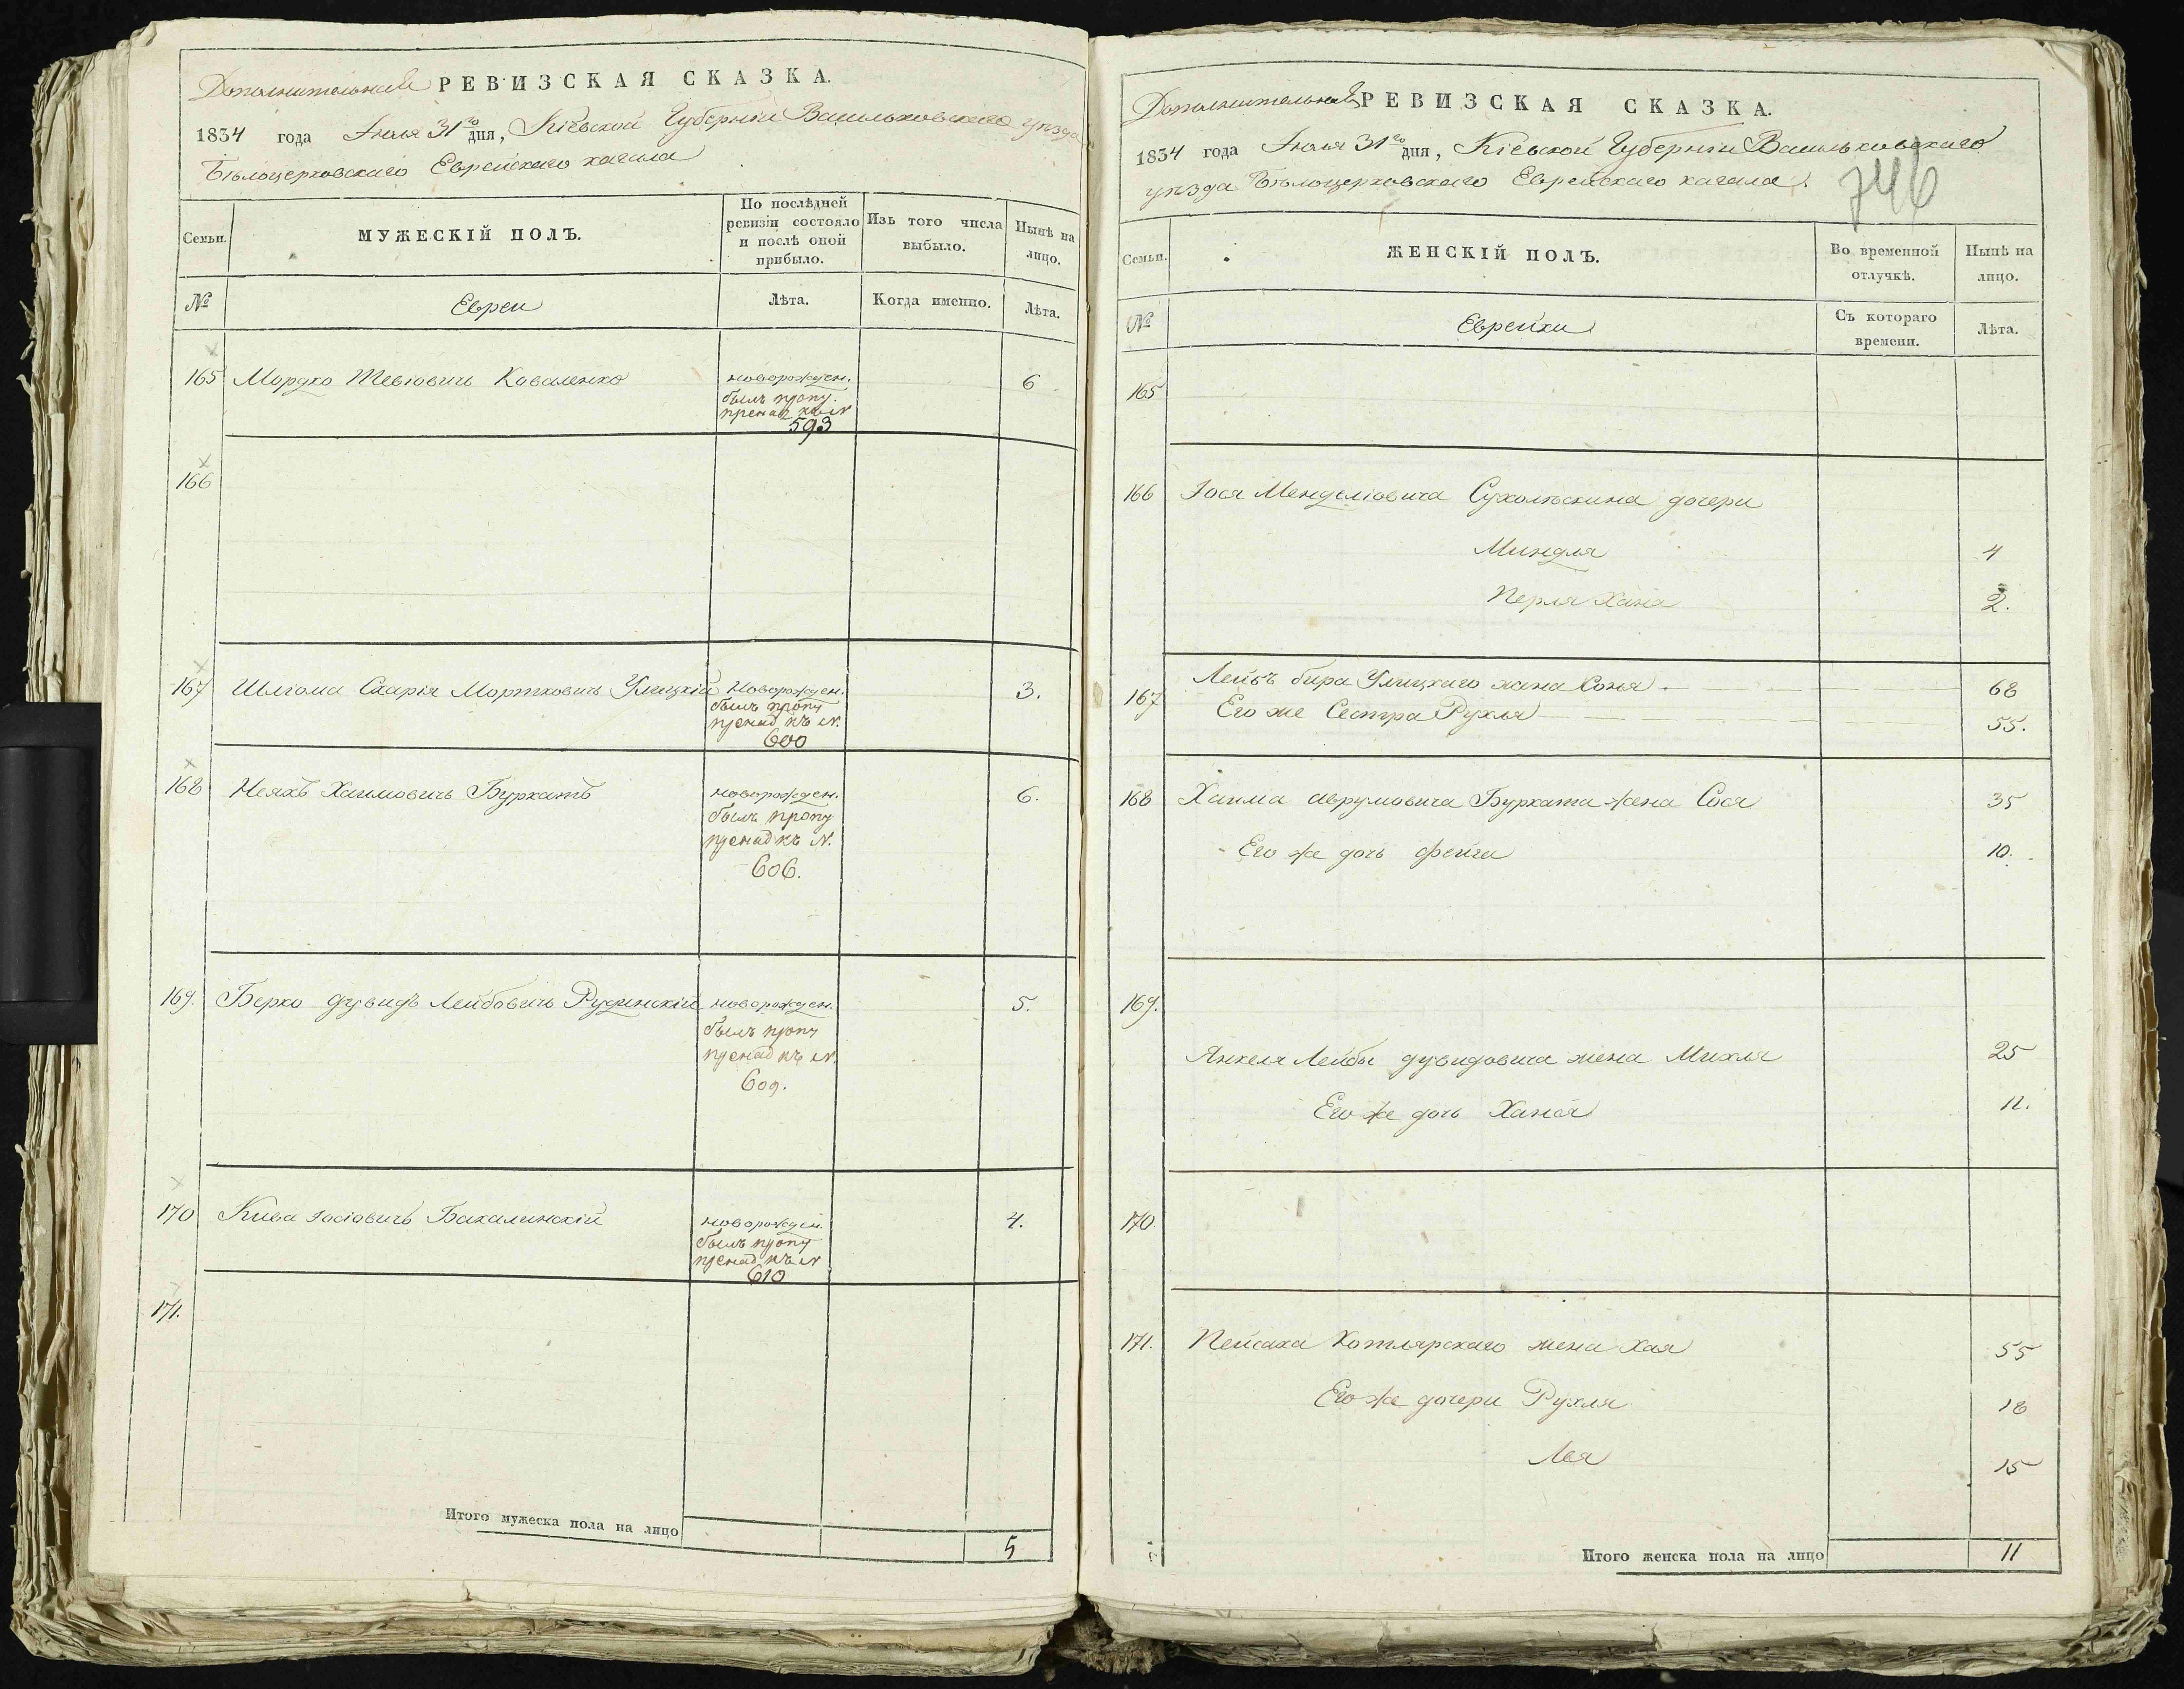 Дополнительная РЕВИЗСКАЯ СКАЗКА.
1834 года Іюля 31го дня, Кіевской Губерніи Васильковскаго уѣзда
Бѣлоцерковскаго Еврейскаго кагала
Семьи.
МУЖЕСКІЙ ПОЛЪ.
По послѣдней ревизіи состояло и послѣ оной прибыло.
Изъ того числа выбыло.
Нынѣ на лицо.
№
Евреи
Лѣта.
Когда именно.
Лѣта.
165 Мордко Тевіовичъ Коваленко новорожден. 6
былъ пропу.
593
166
167 Шлiома Сахарія Мортковичъ Улицкій Новорожден. 3.
былъ пропу
пренад къ №.
600
168 Неяхъ Хаимовичъ Буркатъ новорожден. 6.
былъ пропу
пренад къ №.
606.
169. Берко Дувидъ Лейбовичъ Рудинскій новорожден. 5.
былъ пропу
пренад къ №.
609.
170 Кива Іосіовичъ Бакалинскій новорожден. 4.
былъ пропу
пренад къ №
610
171.
Итого мужеска пола на лицо 5
Дополнительная РЕВИЗСКАЯ СКАЗКА.
1834 года Іюля 31го дня, Кіевской Губерніи Васильковскаго
уѣзда Бѣлоцерковскаго Еврейскаго кагала
746
Семьи.
ЖЕНСКІЙ ПОЛЪ.
Во временной отлучкѣ.
Нынѣ на лицо.
№
Еврейки
Съ котораго времени.
Лѣта.
165
166 Іося Менделіовича Сухолѣскина дочери
Миндля 4
Перля Хана 2.
167 Лейбъ бира Улицкаго жена Соня 68
Его же Сестра Рухля 55.
168 Хаима Аврумовича Бурката жена Сося 35
Его же дочь Фейга 10.
169.
Янкеля Лейбы Дувидовича жена Михля 25
Его же дочь Хана 11.
170
171. Пейсаха Котлярскаго жена Хая 55
Его же дочери Рухля 18
Лея 15
Итого женска пола на лицо 11